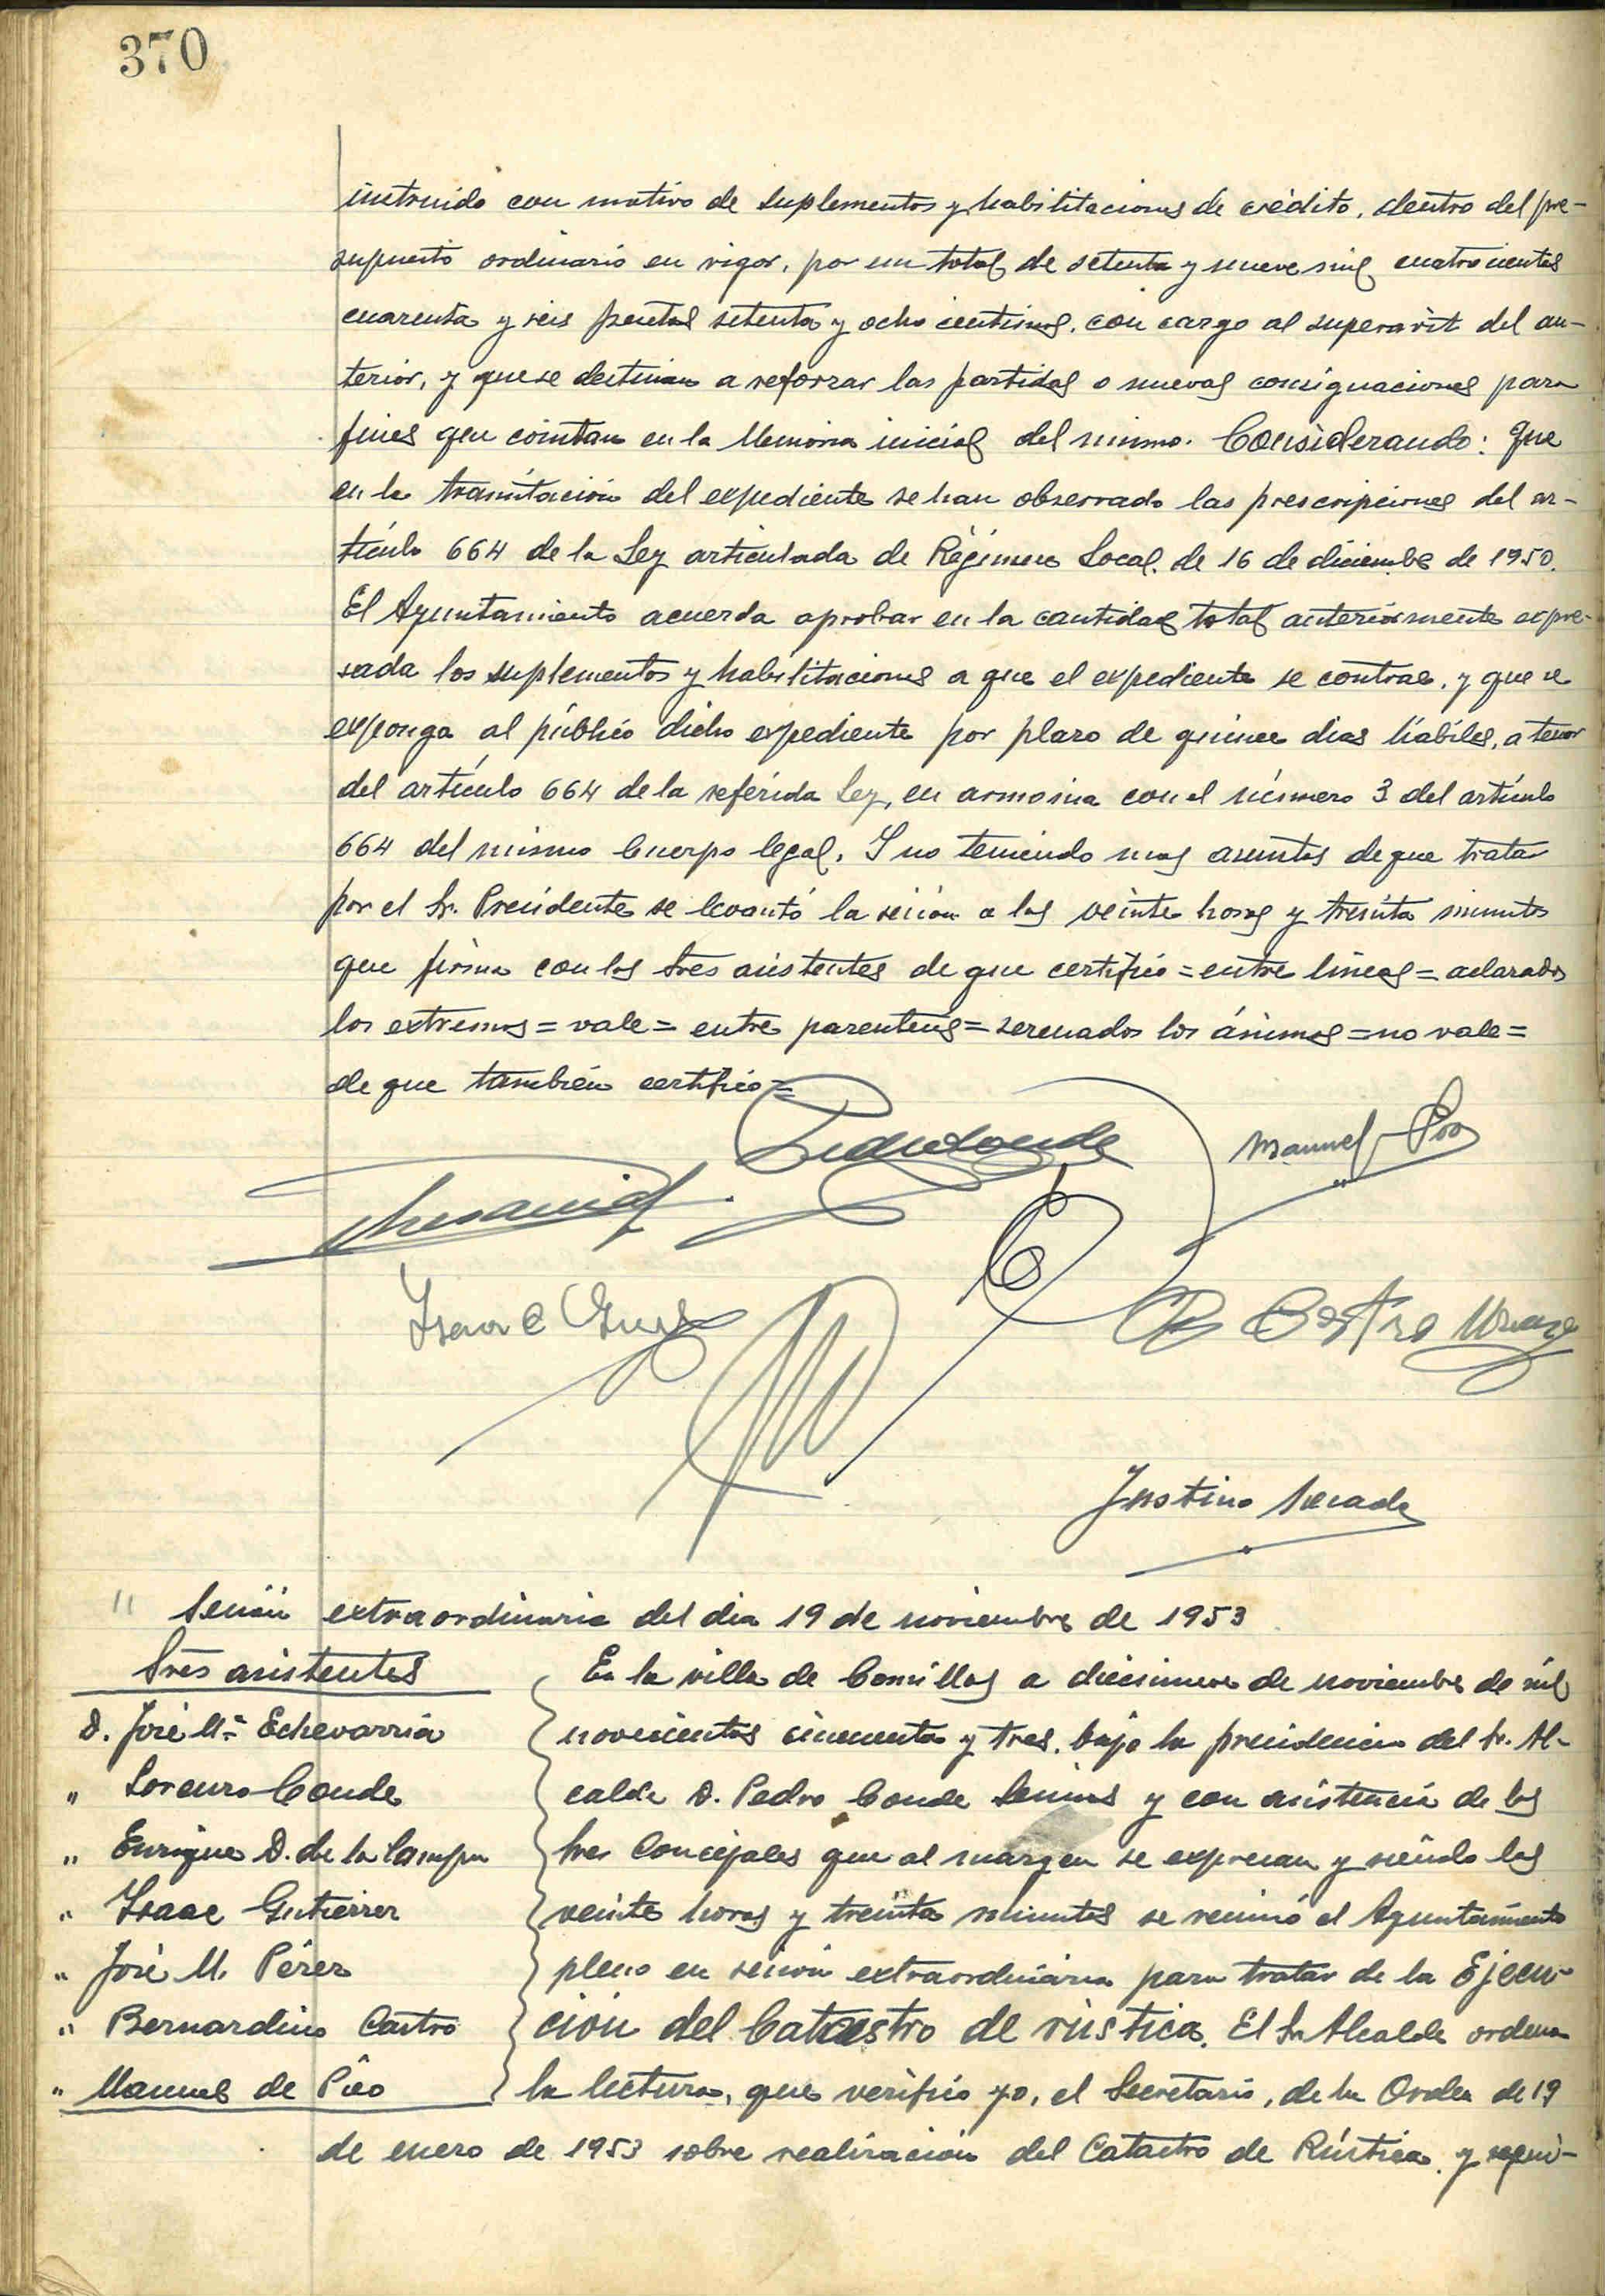 370
instruido con motivo de suplementos y habilitaciones de crédito, dentro del pre-
supuesto ordinario en vigor, por un total de setenta y nueve mil cuatrocientas
cuarenta y seis pesetas setenta y ocho centimos, con cargo al superavit del an-
terior, y que se destinan a reforzar las partidas o nuevas consignaciones para
fines que constan en la Memoria inicial del mismo. Considerando: Que
en la tramitación del expediente se han observado las prescripciones del ar-
tículo 664 de la Ley articulada de Régimen Local de 16 de diciembre de 1950.
El Ayuntamiento acuerda aprobar en la cantidad total anteriormente expre-
sada los suplementos y habilitaciones a que el expediente se contrae, y que se
exponga al público dicho expediente por plazo de quince dias hábiles, a tenor
del artículo 664 de la referida Ley, en armonia con el número 3 del artículo
664 del mismo Cuerpo legal. Y no teniendo mas asuntos de que tratar
por el Sr. Presidente se levantó la sesión a las veinte horas y treinta minutos
que firma con los Sres asistentes de que certifico = entre lineas = aclarados
los extremos = vale = entre parentesis = serenados los ánimos = no vale =
de que también certifico =
Manuel Poo
Isaac Gutz
B Castro
Justino
" Sesión extraordinaria del dia 19 de noviembre de 1953
Sres asistentes
D. José Mª Echevarría
" Lorenzo Conde
" Enrique D. de la Campa
" Isaac Gutierrez
" José M. Pérez
" Bernardino Castro
" Manuel de Póo
En la villa de Comillas a diecinueve de noviembre de mil
novecientos cincuenta y tres, bajo la presidencia del Sr. Al-
calde D. Pedro Conde y con asistencia de los
Sres Concejales que al margen se expresan y siendo las
veinte horas y treinta minutos se reunió el Ayuntamiento
pleno en sesión extraordinaria para tratar de la Ejecu-
ción del Catrastro de rústica. El Sr Alcalde ordena
la lectura, que verifico yo, el Secretario, de la Orden de 19
de enero de 1953 sobre realización del Catastro de Rústica y